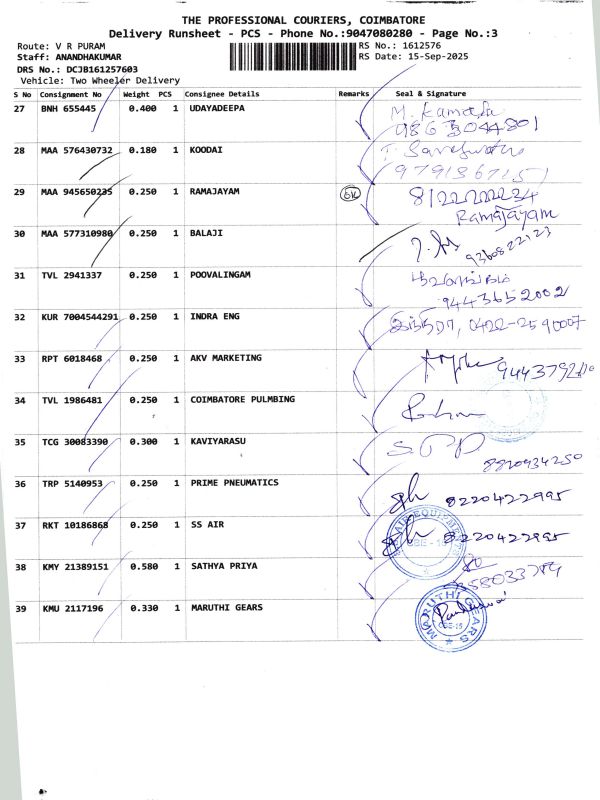 THE PROFESSIONAL COURIERS, COIMBATORE
Delivery Runsheet - PCS - Phone No.:9047080280 - Page No.:3
Route: V R PURAM
RS No.: 1612576
Staff: ANANDHAKUMAR
RS Date: 15-Sep-2025
DRS No.: DCJB161257603
Vehicle: Two Wheeler Delivery
S No Consignment No Weight PCS Consignee Details Remarks Seal & Signature
27 BNH 655445 0.400 1 UDAYADEEPA
28 MAA 576430732 0.180 1 KOODAI
29 MAA 945650235 0.250 1 RAMAJAYAM 8122222234
Ramajayam
30 MAA 577310980 0.250 1 BALAJI 9360822123
31 TVL 2941337 0.250 1 POOVALINGAM பூவலிங்கம்
9443652002
32 KUR 7004544291 0.250 1 INDRA ENG இந்திரா, 0422-2590007
33 RPT 6018468 0.250 1 AKV MARKETING
34 TVL 1986481 0.250 1 COIMBATORE PULMBING
35 TCG 30083390 0.300 1 KAVIYARASU
8220934250
36 TRP 5140953 0.250 1 PRIME PNEUMATICS 8220422995
37 RKT 10186868 0.250 1 SS AIR 8220422995
38 KMY 21389151 0.580 1 SATHYA PRIYA
39 KMU 2117196 0.330 1 MARUTHI GEARS MARUTHI GEARS
CBE-15